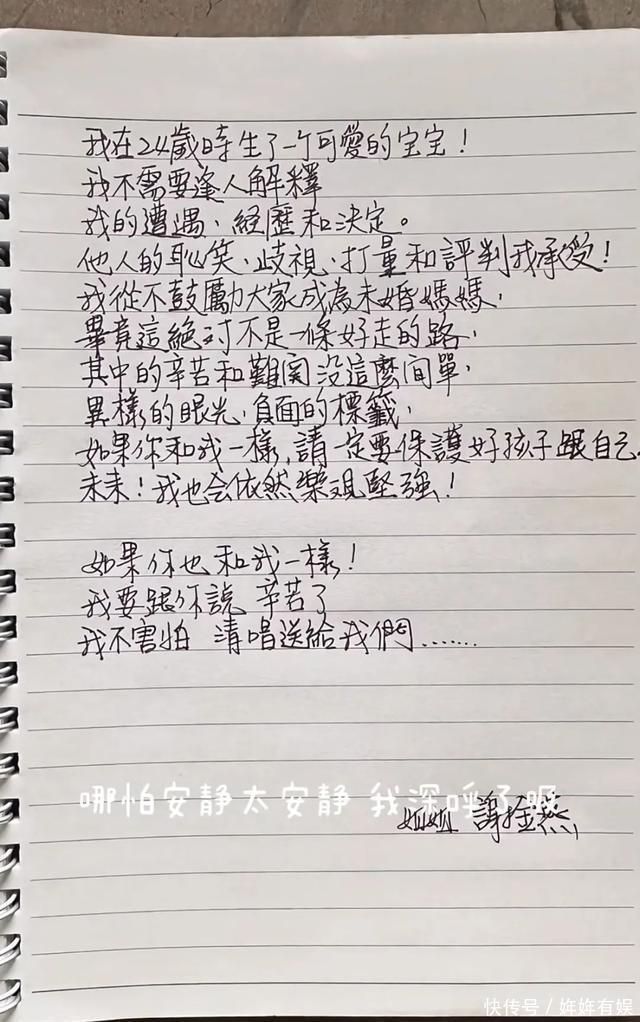 我在24歲時生了一个可愛的宝宝！
我不需要逢人解釋
我的遭遇、經歷和決定。
他人的恥笑、歧視、打量和評判我承受！
我從不鼓勵大家成為未婚媽媽，
畢竟這絕対不是一條好走的路，
其中的辛苦和難関没這麼间單，
異樣的眼光，負面的標籤，
如果你和我一樣，請一定要保護好孩子跟自己。
未来！我也会依然樂观堅強！
如果你也和我一樣！
我要跟你說 辛苦了
我不害怕 清唱送給我們……
哪怕安静太安静 我深呼了吸
謝金燕
快传号／姩姩有娱